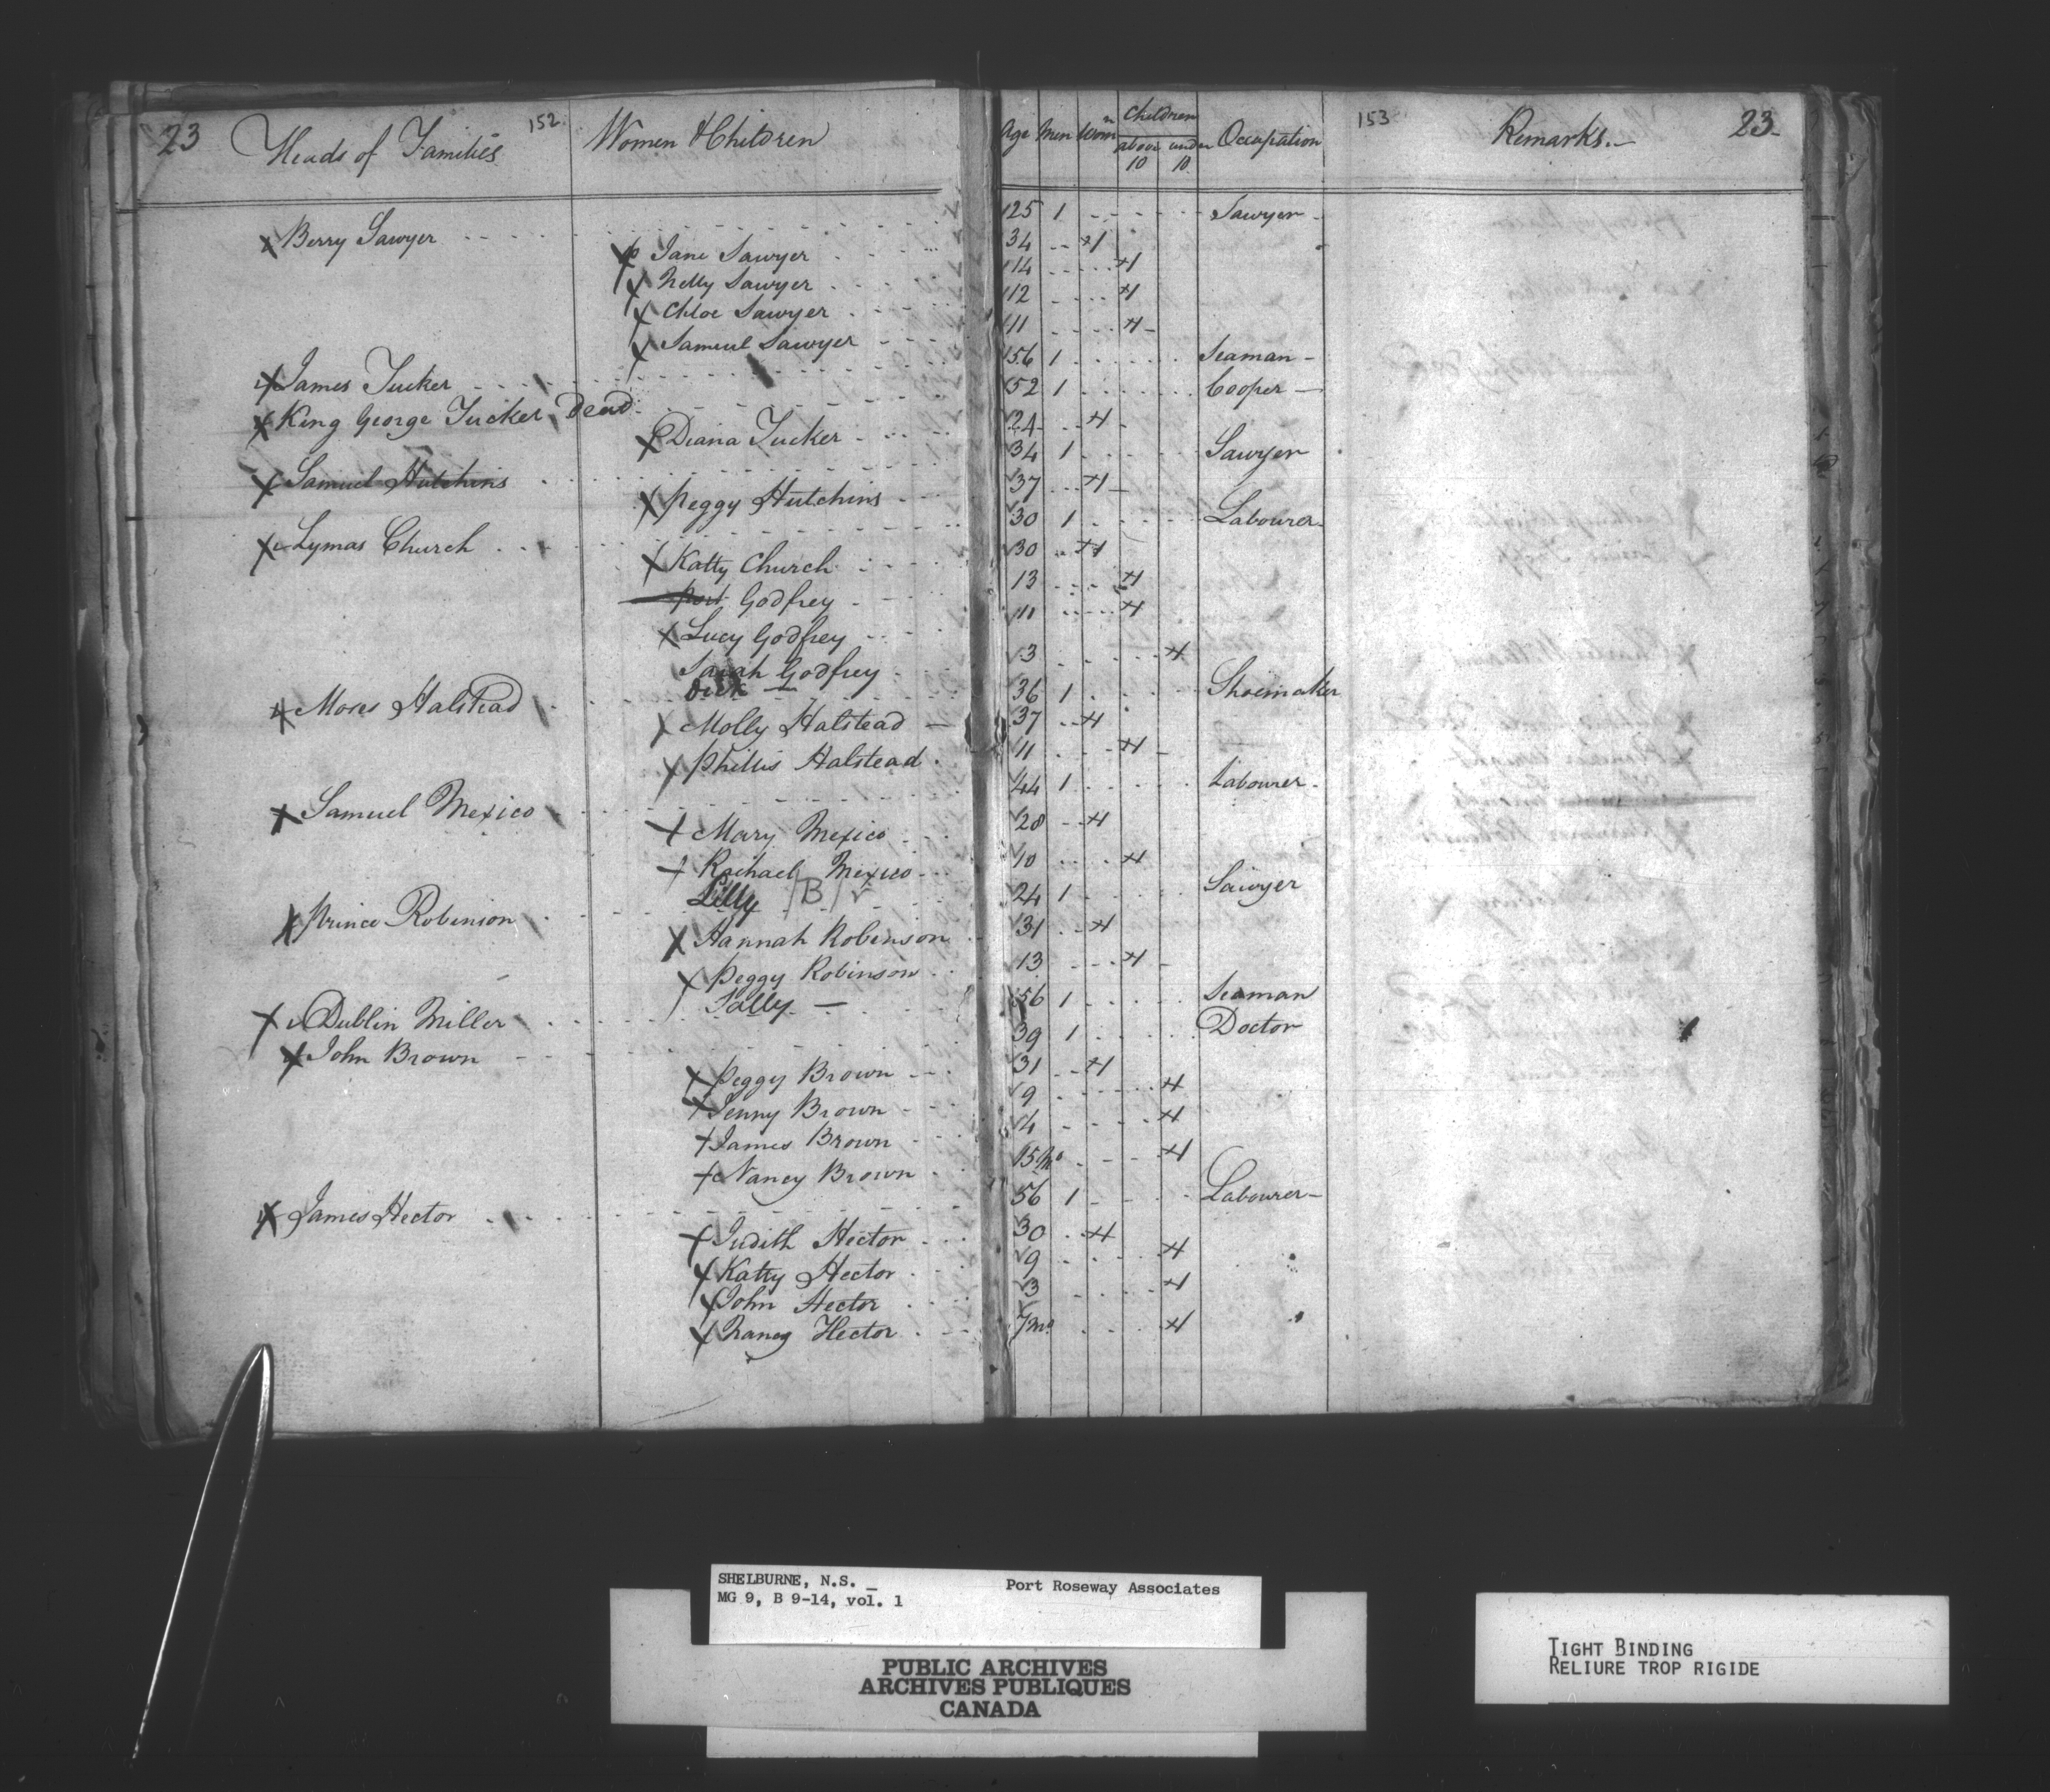 23 Heads of Families 152 Women & Children Age Men Womn Children above 10 under 10 Occupation 153 Remarks.- 23
Berry Sawyer 25 1 Sawyer
Jane Sawyer 34 1
Nelly Sawyer 14 1
Chloe Sawyer 12 1
Samuel Sawyer 11 1
James Tucker 56 1 Seaman
King George Tucker Dead 52 1 Cooper
Diana Tucker 24 1
Samuel Hutchins 34 1 Sawyer
Peggy Hutchins 37 1
Lymas Church 30 1 Labourer
Katty Church 30 1
Port Godfrey 13 1
Lucy Godfrey 11 1
Sarah Godfrey 3 1
Dick —
Moses Halstead 36 1 Shoemaker
Molly Halstead 37 1
Phillis Halstead 11 1
Samuel Mexico 44 1 Labourer
Mary Mexico 28 1
Rachael Mexico 10 1
Lilly /B/
Prince Robinson 24 1 Sawyer
Hannah Robinson 31 1
Peggy Robinson 13 1
Sally —
Dublin Miller 56 1 Seaman
John Brown 39 1 Doctor
Peggy Brown 31 1
Jenny Brown 9 1
James Brown 4 1
Nancy Brown 15 Mo 1
James Hector 56 1 Labourer
Judith Hector 30 1
Katty Hector 9 1
John Hector 3 1
Nancy Hector 7 mo 1
SHELBURNE, N.S. _ Port Roseway Associates
MG 9, B 9-14, vol. 1
PUBLIC ARCHIVES
ARCHIVES PUBLIQUES
CANADA
TIGHT BINDING
RELIURE TROP RIGIDE